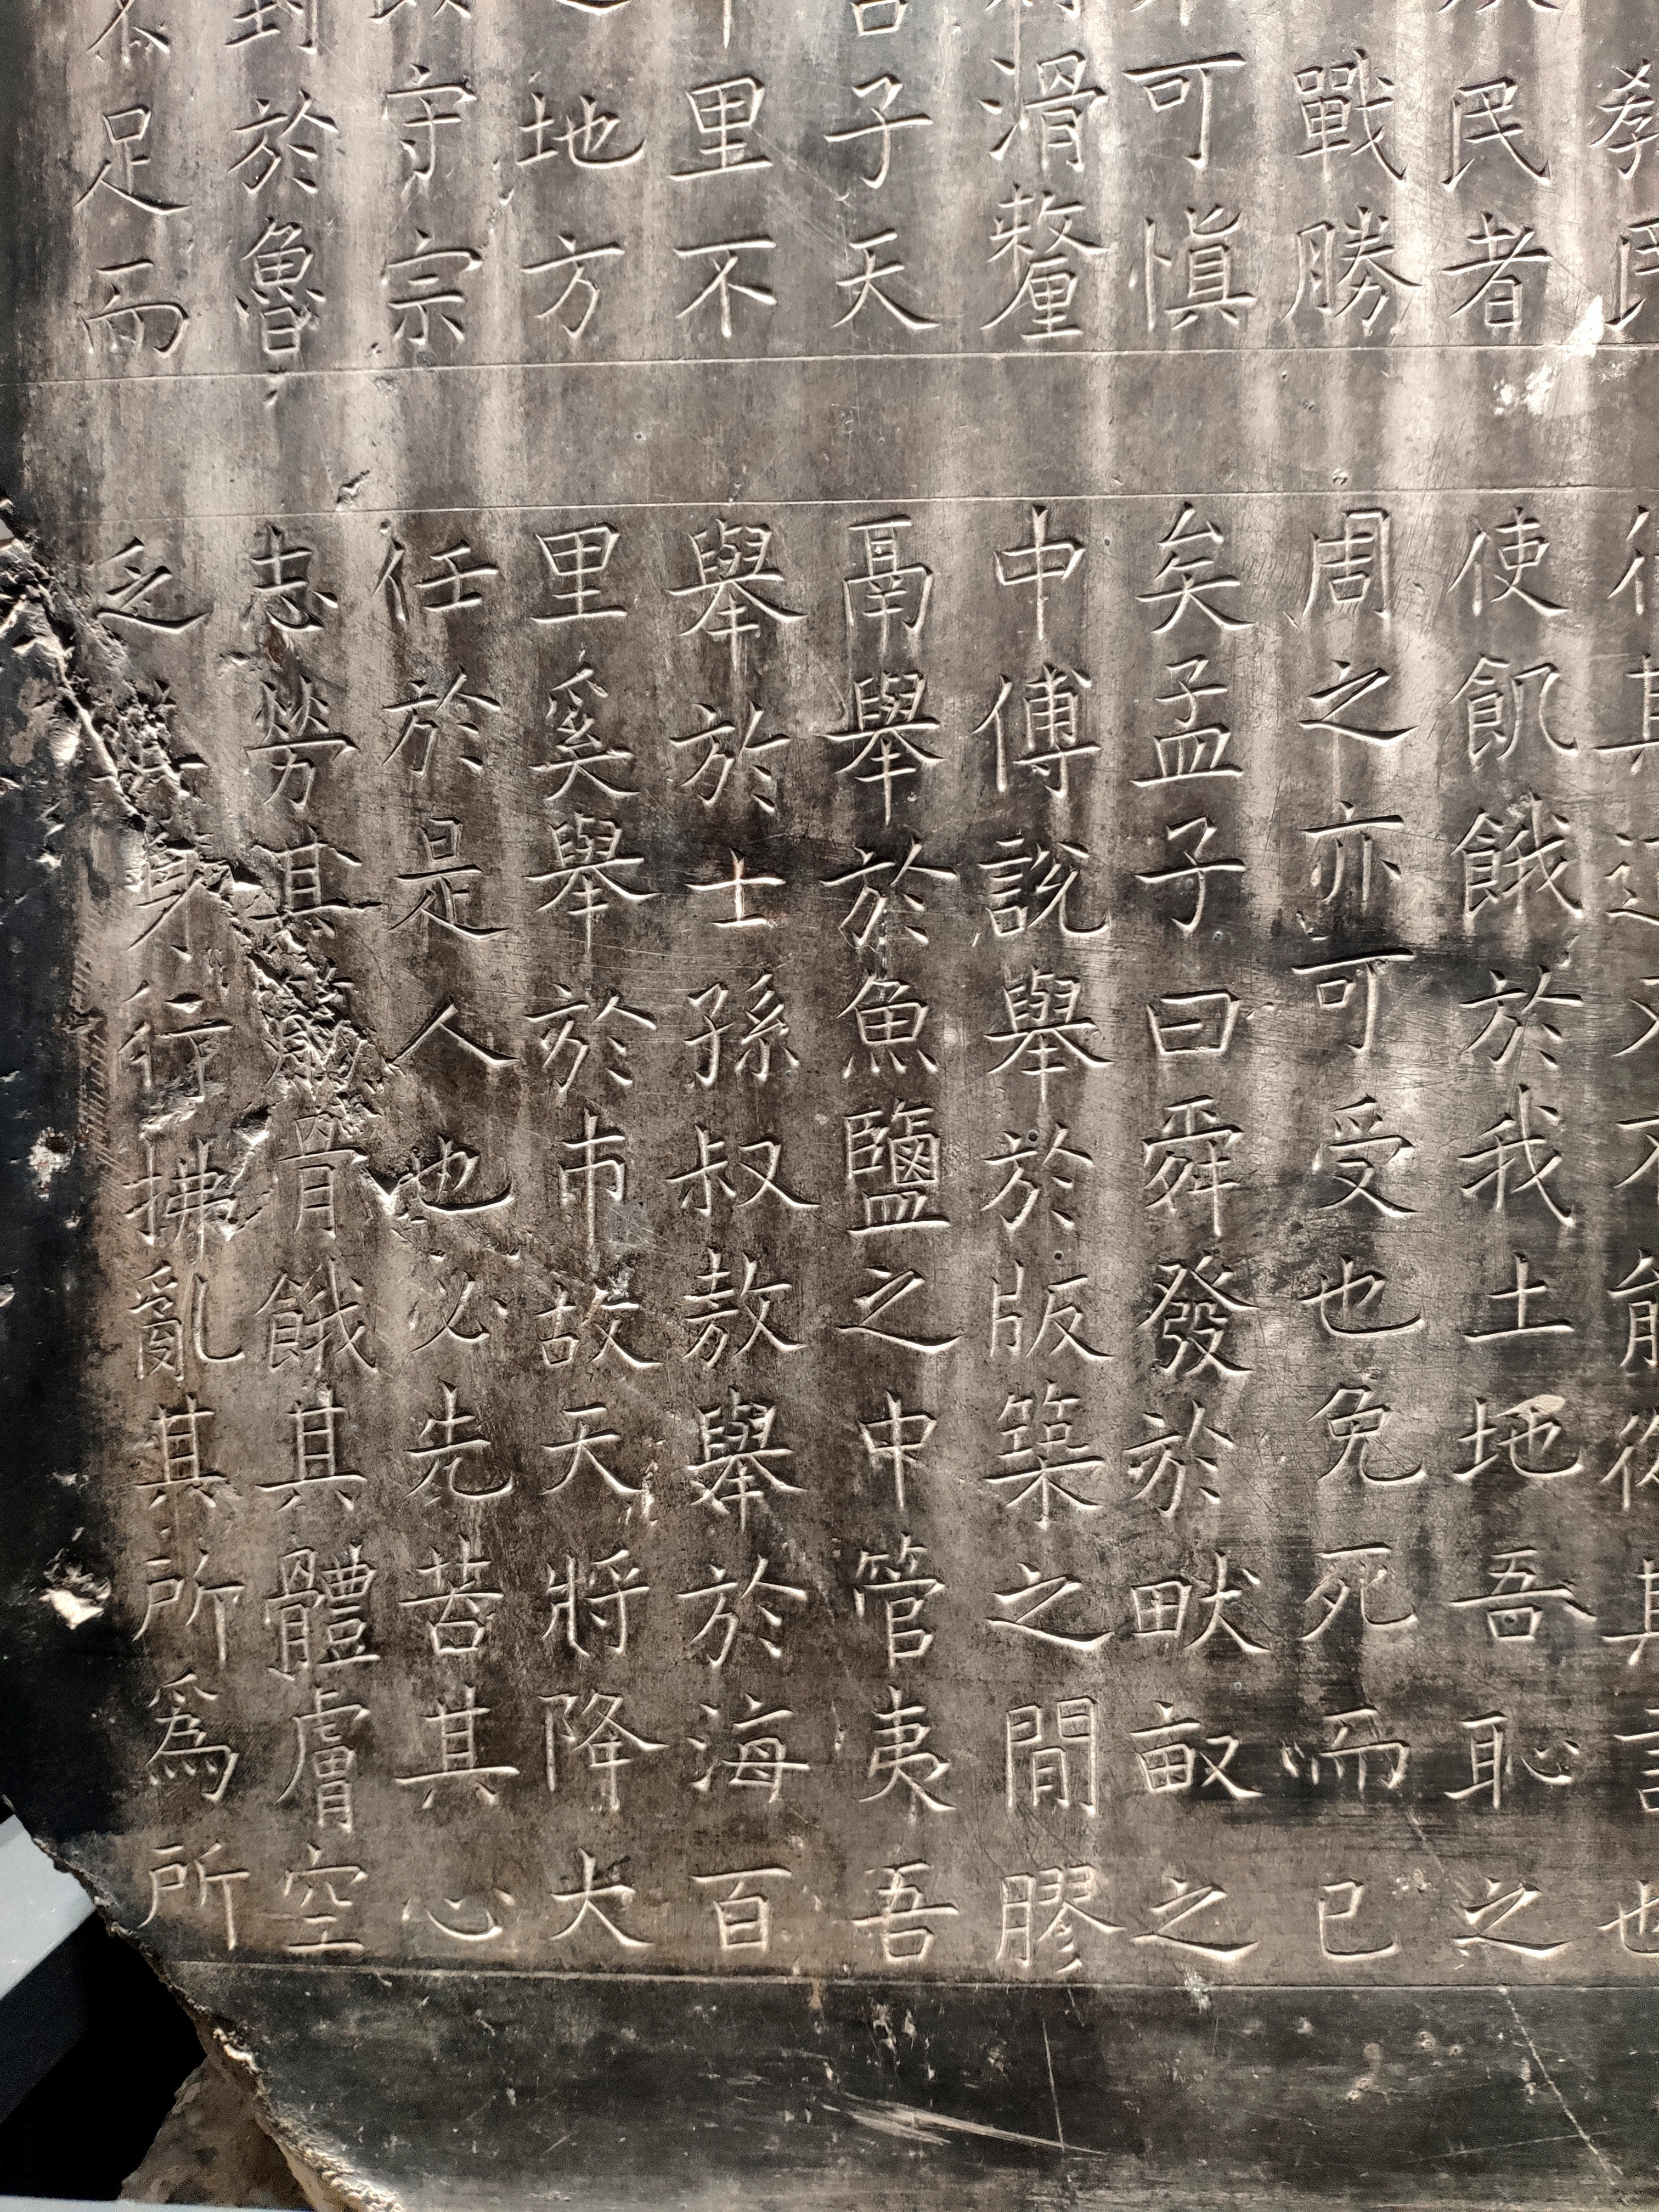 教民
民者
戰勝
可慎
滑釐
子天
里不
之地方
守宗
封於魯
不足而
行其道又不能從其言也
使飢餓於我土地吾恥之
周之亦可受也免死而已
矣孟子曰舜發於畎畝之
中傅說舉於版築之間膠
鬲舉於魚鹽之中管夷吾
舉於士孫叔敖舉於海百
里奚舉於市故天將降大
任於是人也必先苦其心
志勞其筋骨餓其體膚空
乏其身行拂亂其所爲所